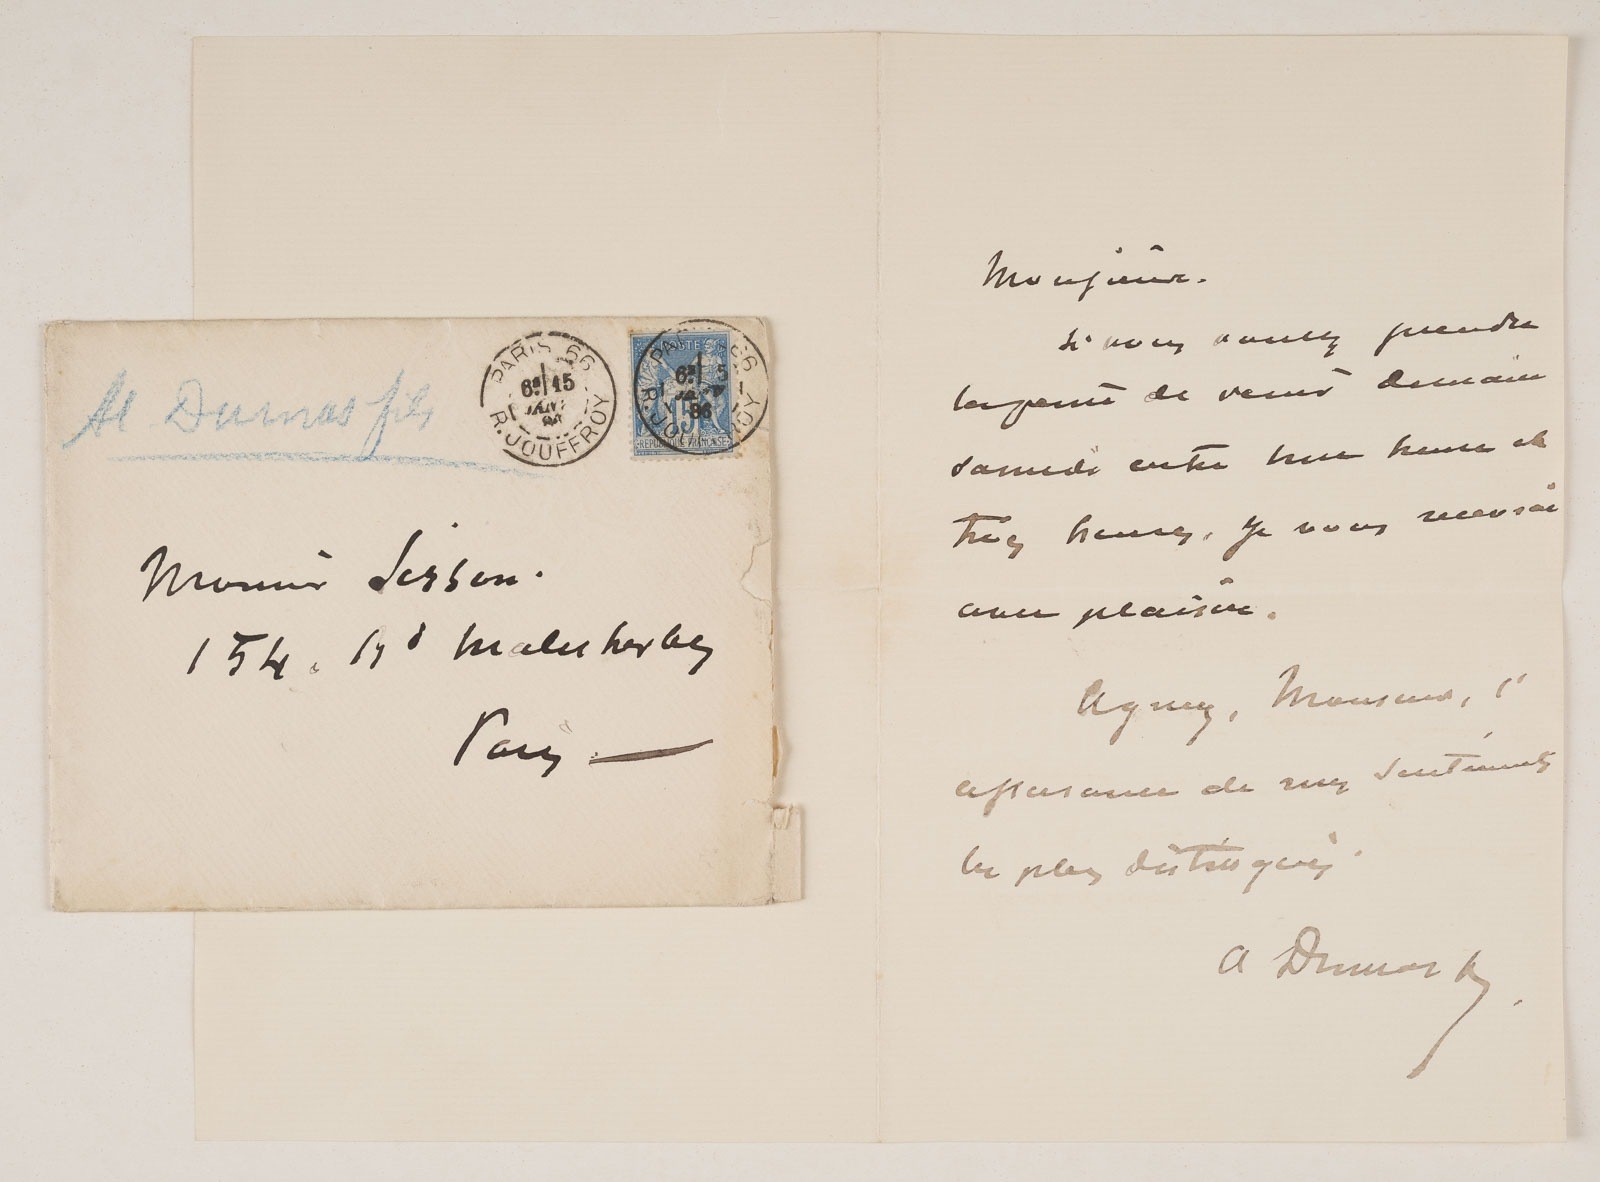 Al Dumas fils
PARIS 66
6E 15
JANV
86
R. JOUFFROY
POSTES
PARIS 66
6E 15
JANV
86
R. JOUFFROY
15
REPUBLIQUE FRANCAISE
Monsieur Sisson.
154. Bd Malesherbes
Paris
Monsieur.
Si vous voulez prendre
la peine de venir demain
samedi entre une heure et
trois heures, je vous recevrai
avec plaisir.
Agréez, Monsieur, l'
assurance de mes sentiments
les plus distingués.
A Dumas fils